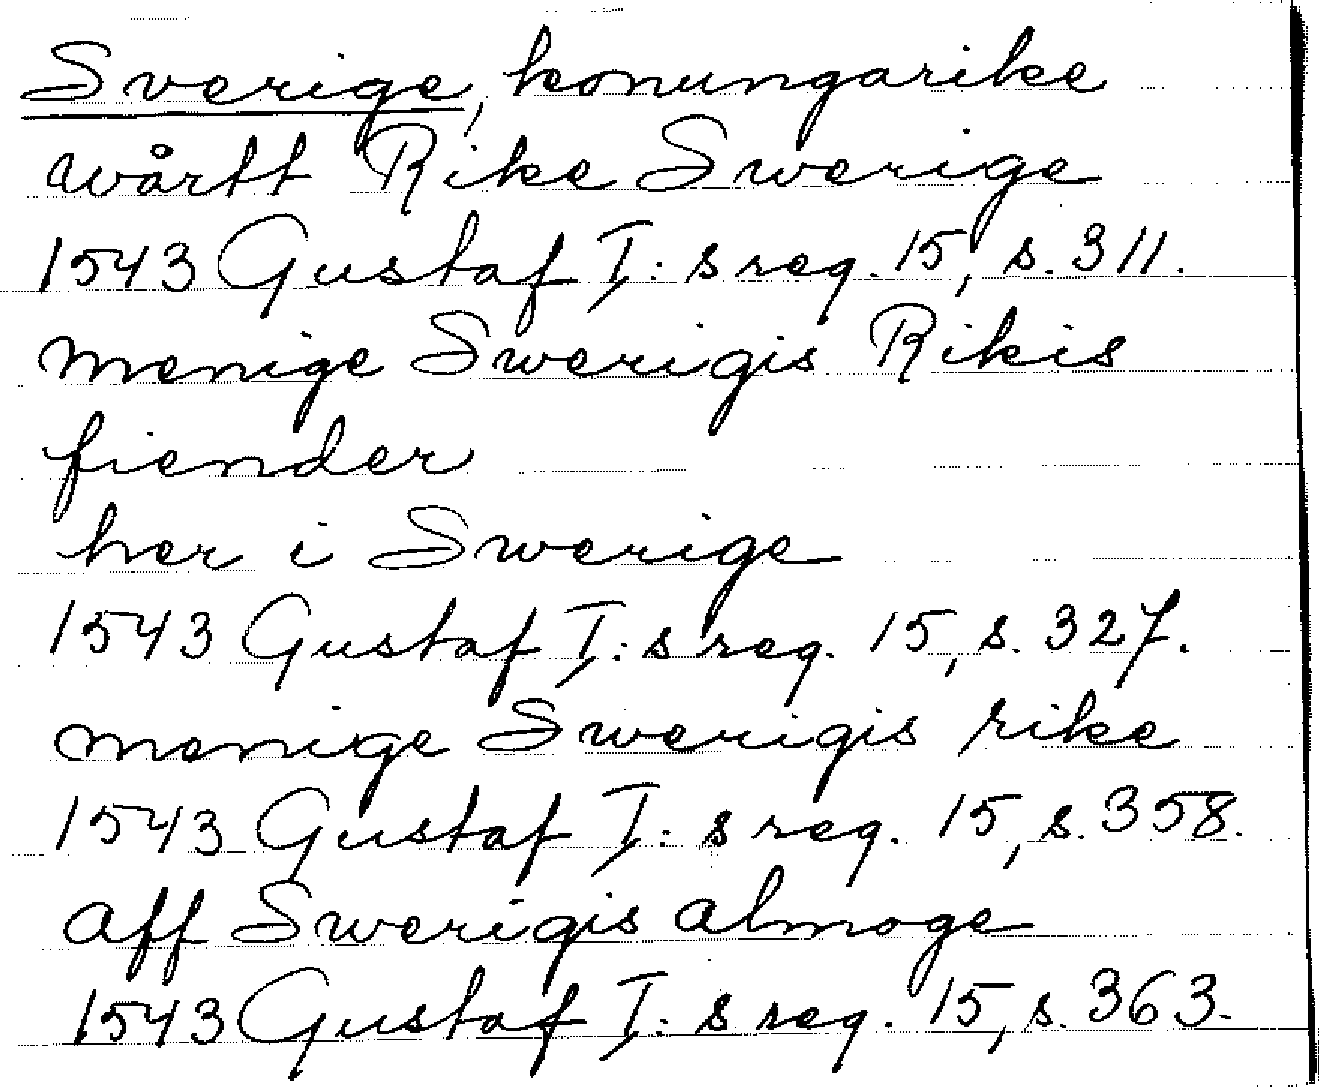 Sverige, konungarike
wårtt Rike Swerige
1543 Gustaf I: s reg. 15, s. 311.
menige Swerigis Rikis
fiender
her i Swerige
1543 Gustaf I: s reg. 15, s. 327.
menige Swerigis rike
1543 Gustaf I: s reg. 15, s. 358.
aff Swerigis almoge
1543 Gustaf I: s reg. 15, s. 363.